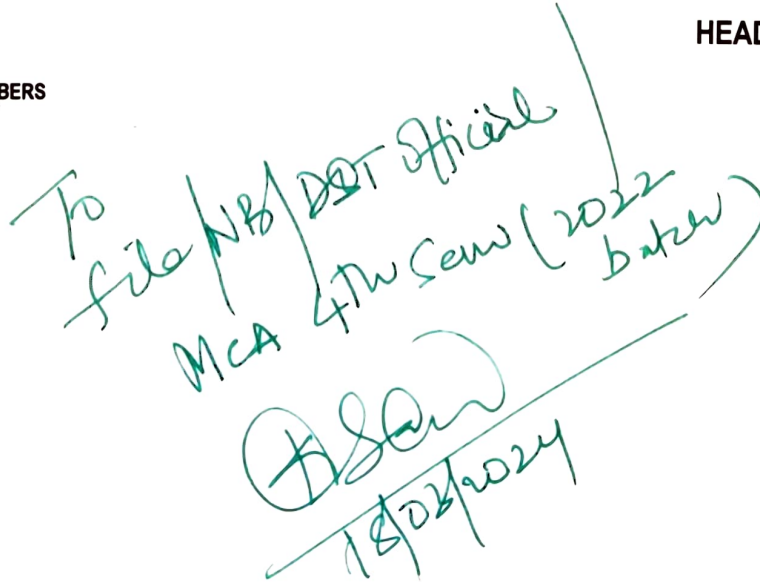 HEAD
BERS
To
file/NB/DDT Official
MCA 4Th Sem (2022
batch)
18/03/2024